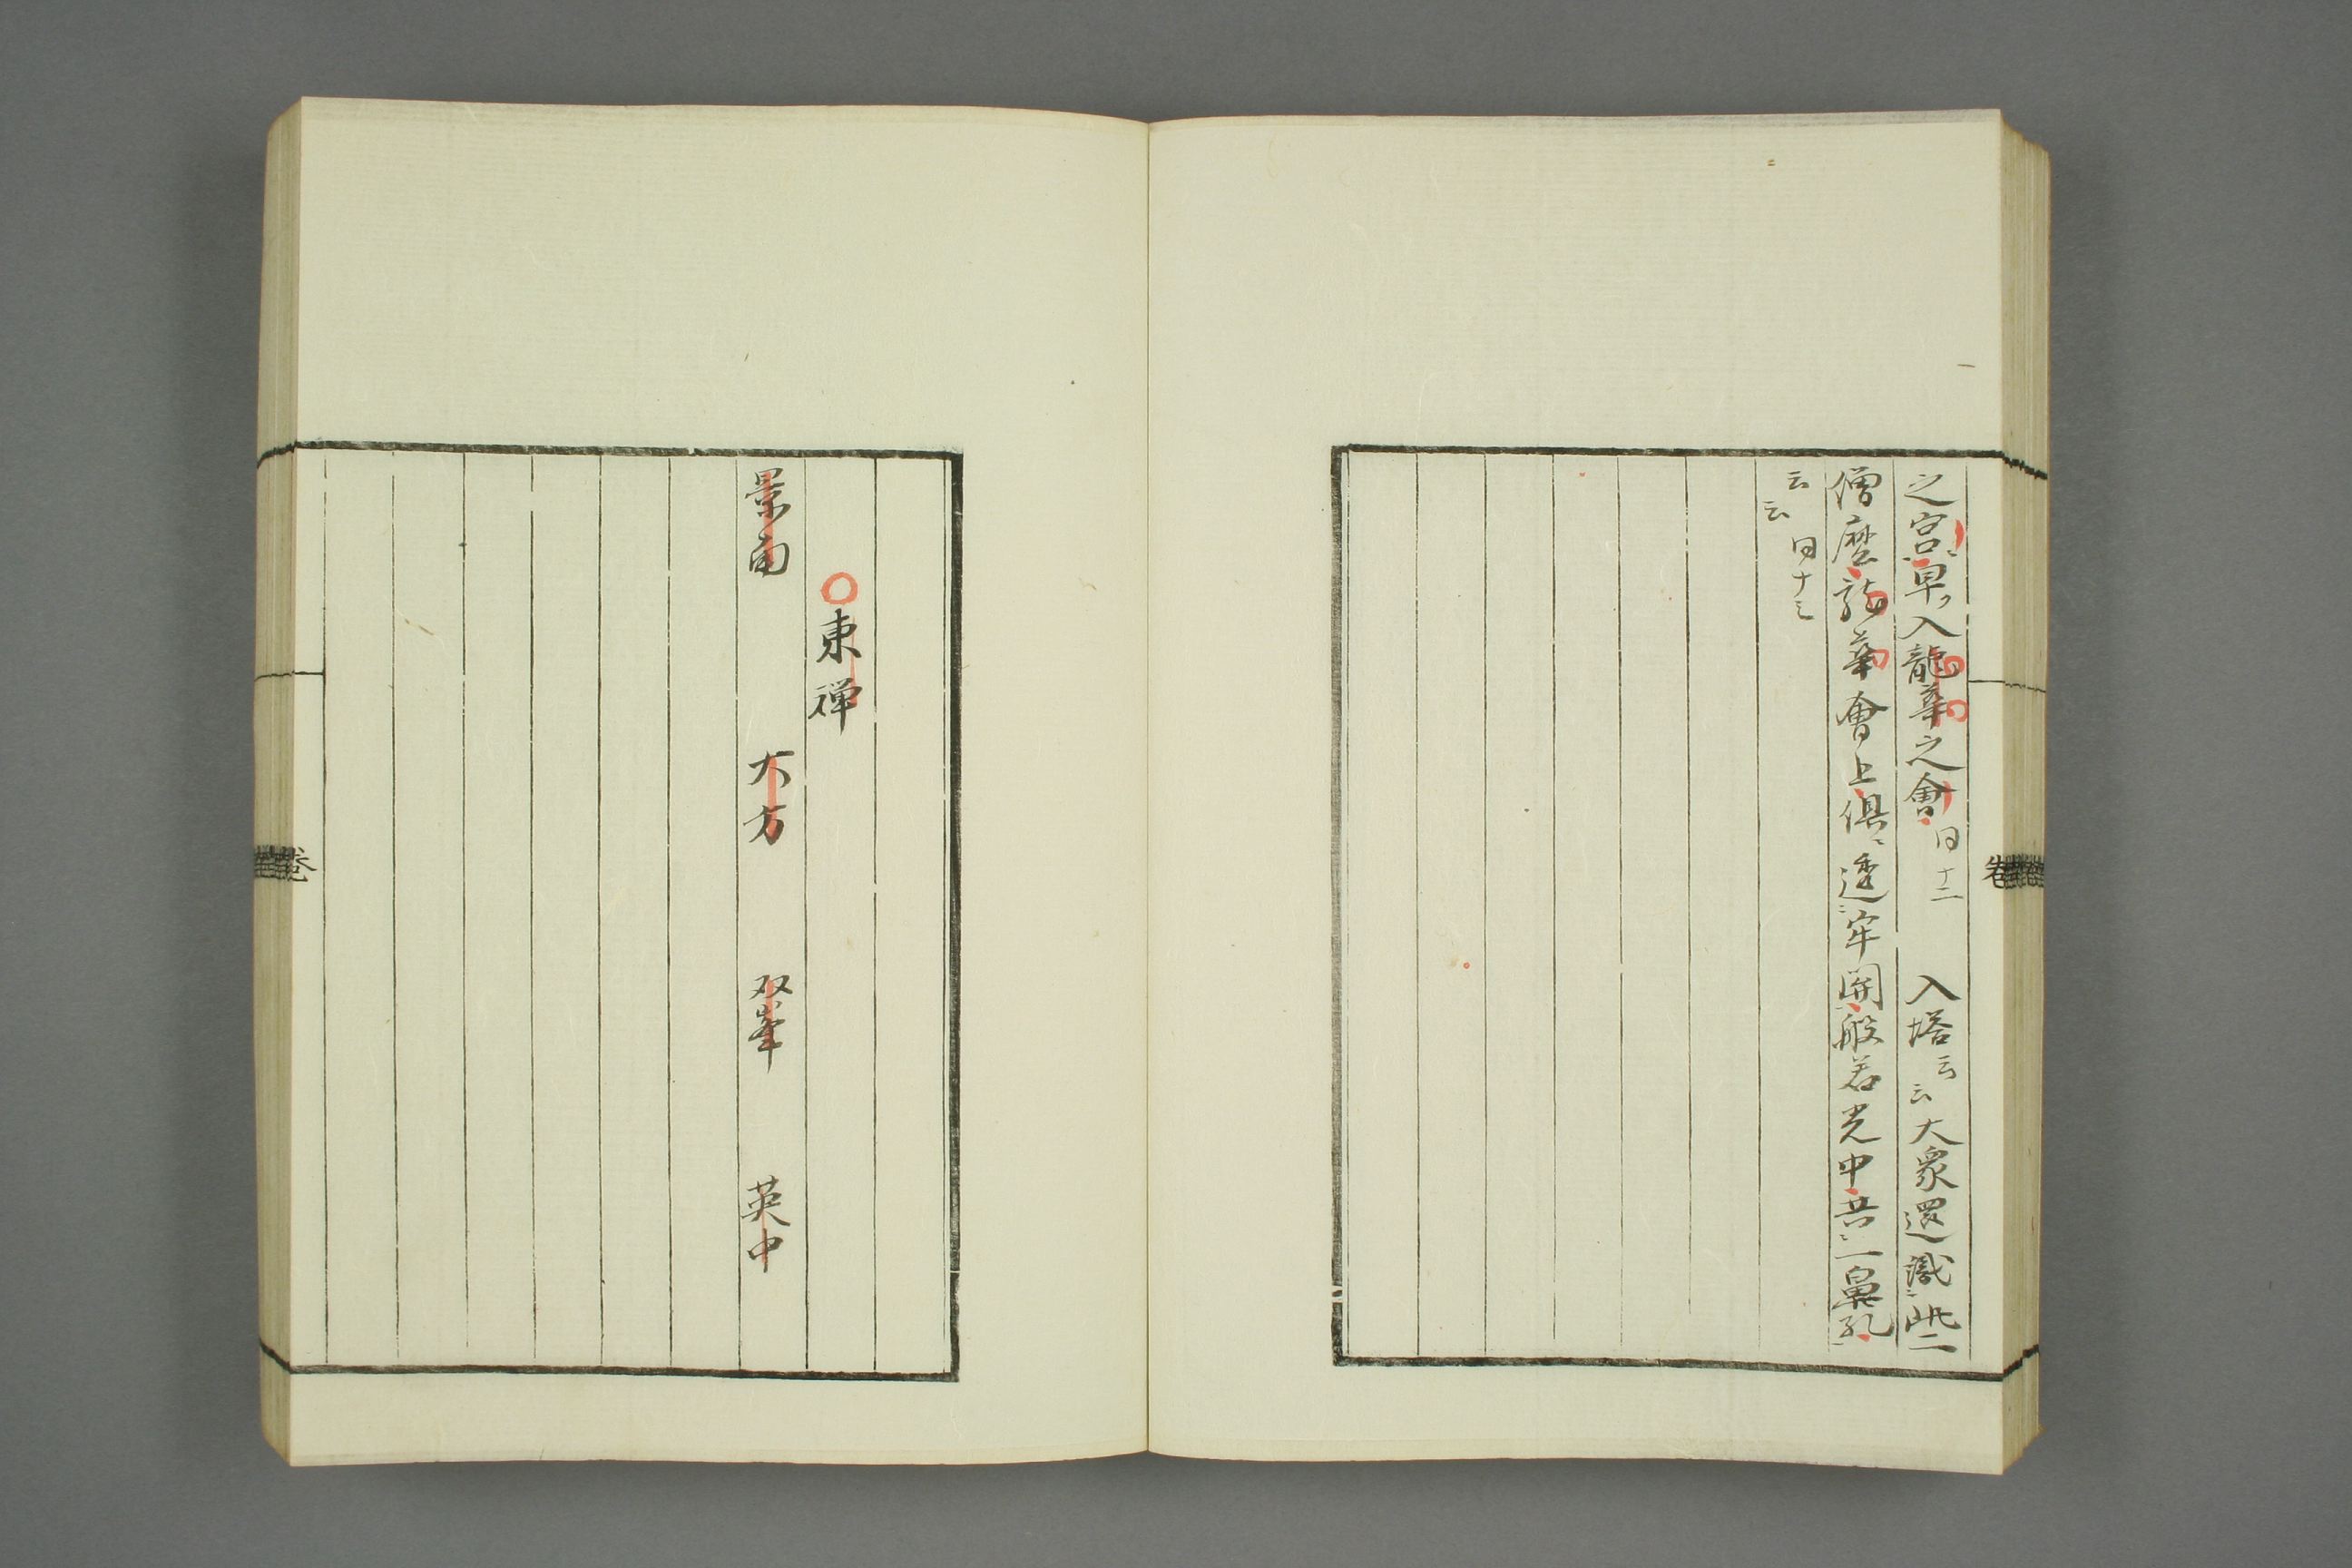 之宮早入龍華之會 同十二 入塔云云大衆還識此二
僧麼龍華會上俱透牢関般若光中共一鼻孔
云云 同十三
○東禅
景南 大方 双峯 英中
卷
卷